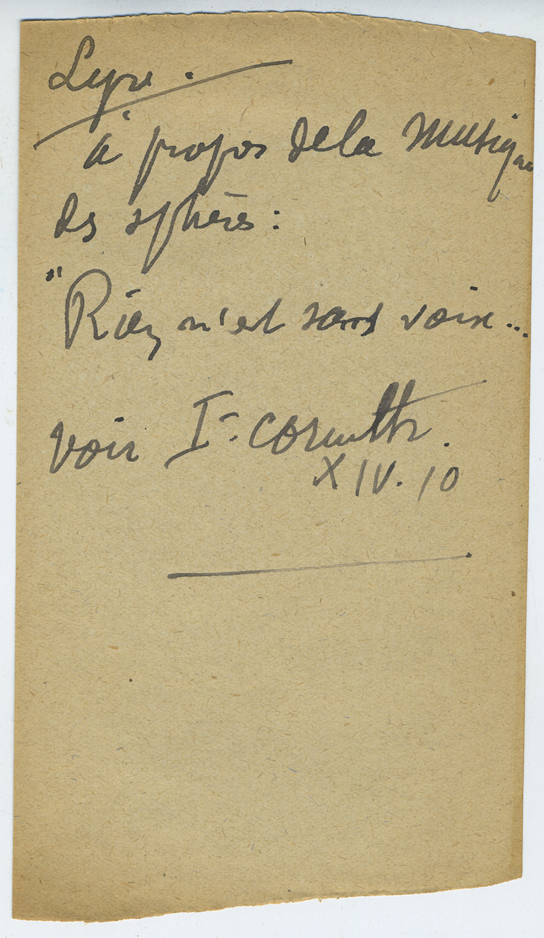 Lyre.
à propos de la Musique
des sphères:
"Rien n'est sans voix...
voir I. Corinth.
XIV. 10